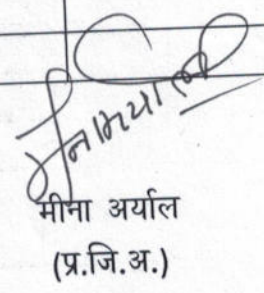 मीना अर्याल
(प्र.जि.अ.)